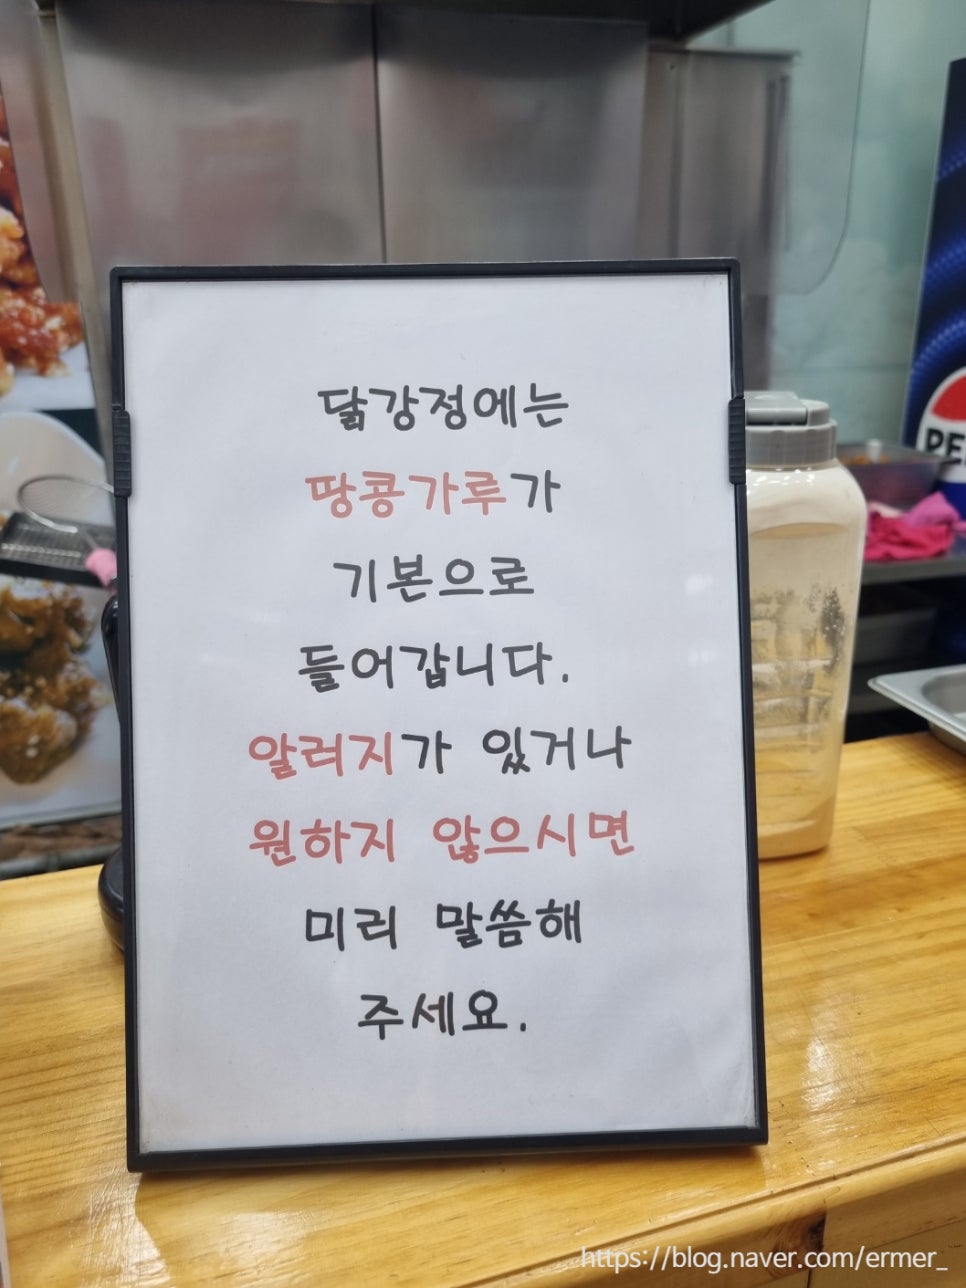 닭강정에는
땅콩가루가
기본으로
들어갑니다.
알러지가 있거나
원하지 않으시면
미리 말씀해
주세요.
https://blog.naver.com/ermer_